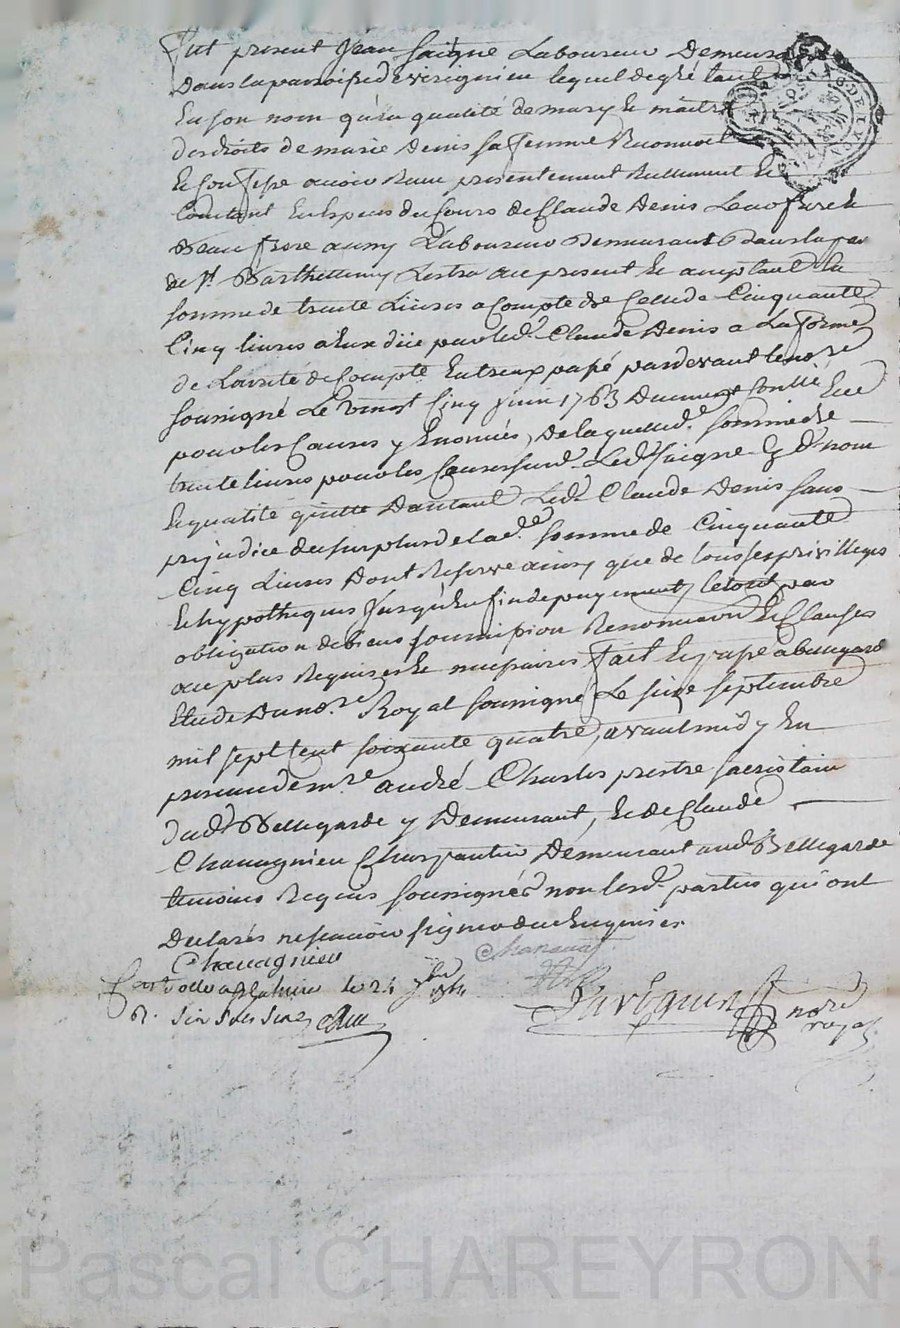 Fut present Jean Saigne Laboureur Demeurant
Dans la paroisse de virignieu lequel de gré tant
En son nom qu'en qualité de mary Et maitre
des droits de marie Denis sa femme Reconnoit
Et Confesse avoir Receu presentement Reellement Et
Comtant En Especes du Cours de Claude Denis Leur frere Et
Beau frere aussy Laboureur Demeurant Dans la par
de St Barthelemy Lestra ace present Et aceptant la
somme de trente Livres a Compte de Celle de Cinquante
Cinq livres a Eux düe par led. Claude Denis a La forme
de L'arreté de Compte Entreux passé pardevant le nore
soussigné Le Vingt Cinq Juin 1763 Duement Conllé Ece
pour les Causes y Enoncées, de laquelle d. somme de
trente livres pour les Causes susd. Led. Saigne Esd. nom
Et qualité quitte D'autant Led. Claude Denis sans
prejudice du surplus de la d. somme de Cinquante
Cinq Livres Dont Reserve ainsy que de tous ses privilleges
Et hypotheques Jusqu'En fin de payement, le tout par
obligation de biens soumission Renonciaon Et Clauses
au plus Requises Et necessaires fait Et passé a bellegard
Etude Du nore Royal soussigné Le seize septembre
mil sept Cent soixante quatre, avant midy En
presence de mre andré Charles prestre sacristain
dud. Bellegarde y Demeurant, Et de Claude
Chavagnieu Charpentier Demeurant aud. Bellegarde
temoins Requis soussignés non lesd. parties qui ont
Declarés ne scavoir signer de ce Enquises
Chavagnieu
le 24 7bre 1764
R. Six sols Six
nore
royal
Pascal CHAREYRON